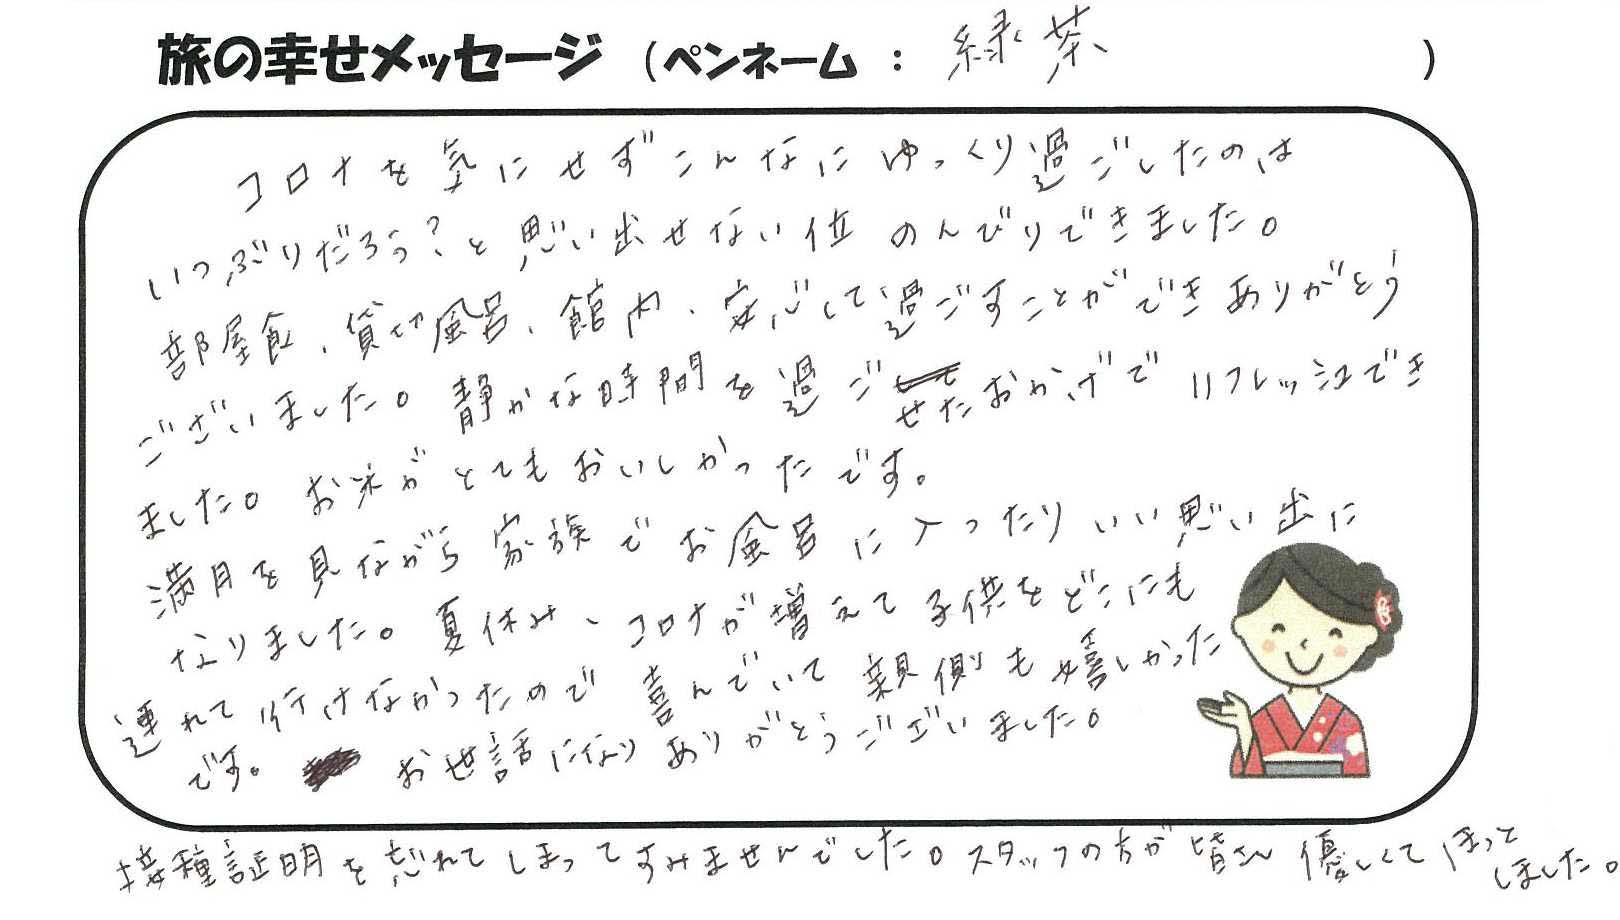 旅の幸せメッセージ（ペンネーム：緑茶）
コロナを気にせずこんなにゆっくり過ごしたのは
いつぶりだろう?と思い出せない位のんびりできました。
部屋食、貸切風呂、館内、安心して過ごすことができありがとう
ございました。静かな時間を過ごせたおかげでリフレッシュでき
ました。お米がとてもおいしかったです。
満月を見ながら家族でお風呂に入ったりいい思い出に
なりました。夏休み、コロナが増えて子供をどこにも
連れて行けなかったので喜んでいて親側も嬉しかった
です。お世話になりありがとうございました。
接種証明を忘れてしまってすみませんでした。スタッフの方が皆さん優しくてほっと
しました。